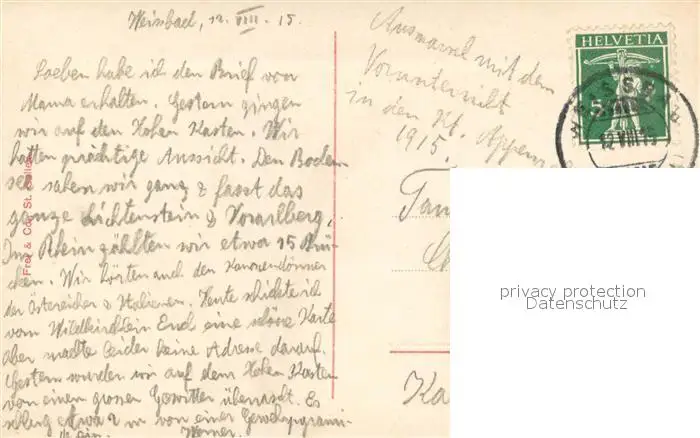 Weissbad, 12. VIII. 15.
Soeben habe ich den Brief von
Mama erhalten. Gestern gingen
wir auf den Hohen Kasten. Wir
hatten prächtige Aussicht. Den Boden
see sahen wir ganz & fasst das
ganze Lichtenstein & Vorarlberg.
Im Rhein zählten wir etwa 15 Brü-
cken. Wir hörten auch den Kanonendonner
der Östereicher & Italiener. Heute schickte ich
vom Wildkirchlein Euch eine schöne Karte
aber machte leider keine Adresse darauf.
Gestern wurden wir auf dem Hohen Kasten
von einem grossen Gewitter überrascht. Es
schlug etwa 2 m von einer Gewehrpyrami-
de ein. Werner.
Frei & Co, St. Gallen
Ausmarsch mit dem
Vorunterricht
in den Kt. Appenz
1915.
HELVETIA
5
12 VIII 15
Fam
Ka
privacy protection
Datenschutz